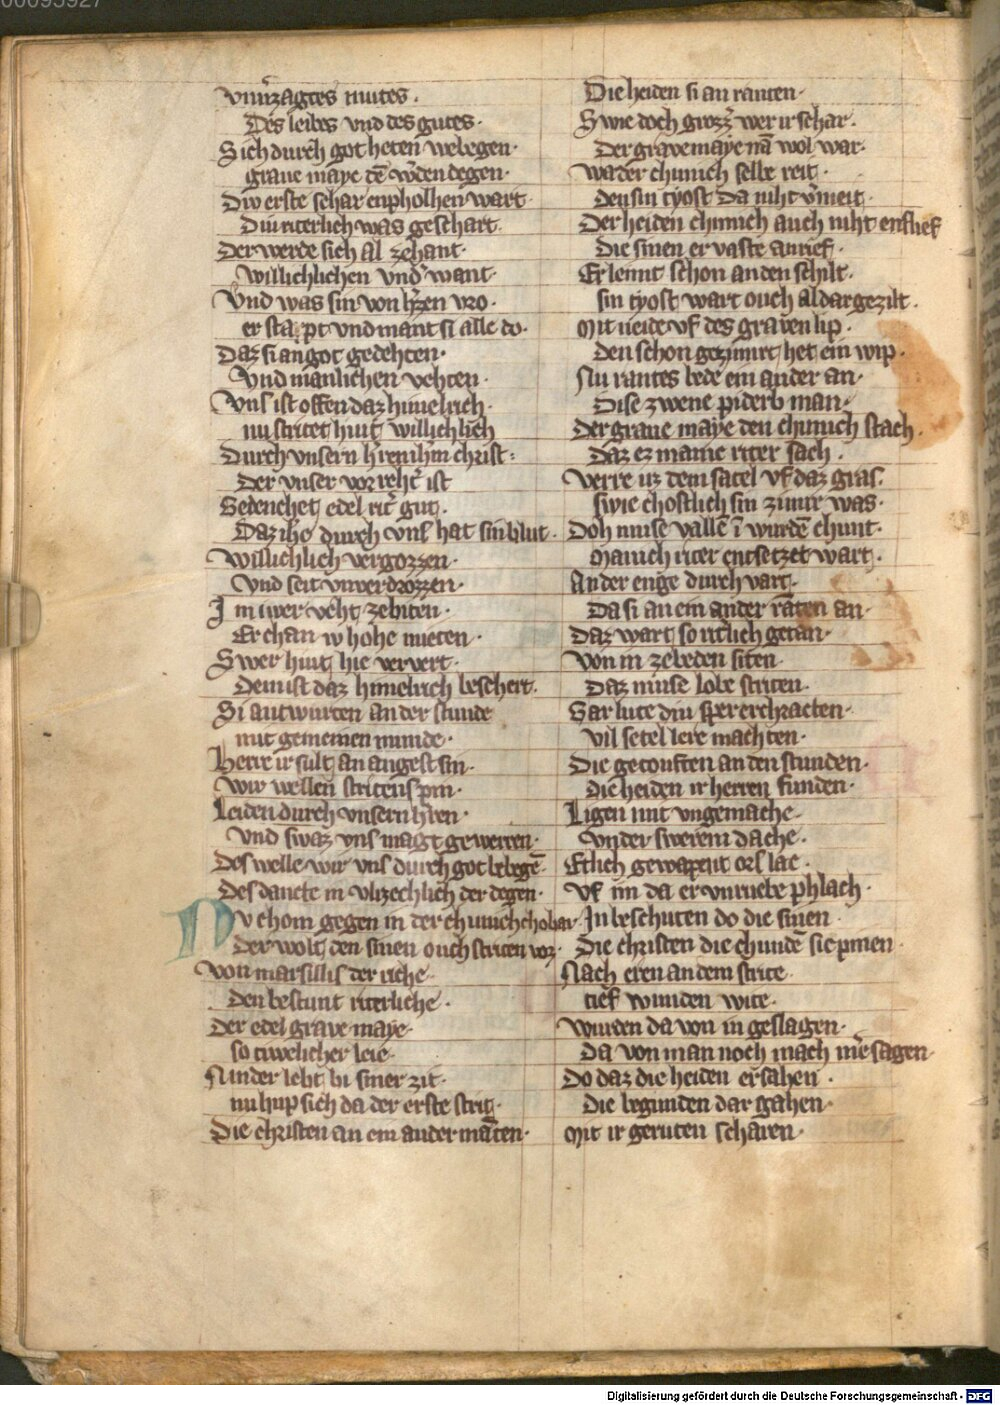 00095927
vnuͤrzagtes mutes ·
Des leibes vnd des gutes ·
Sich durch got heten webegen ·
graue maye dē w̄den degen ·
Div erste schar enpholhen wart ·
Diu riterlich was geschart ·
Der werde sich al zehant ·
willichlichen vnd want ·
Vnd was sin von h̄zen vro ·
er sta pt vnd mant si alle do ·
Daz si an got gedehten ·
Vnd manlichen vehten ·
Vns ist offen daz himelrich ·
nu stritet hiut willichlich
Durch vnsern h̄ren ih̄m christ :
Der vnser vor rehē ist
Gedenchet edel rit̄ gut ·
Daz ih̄c durch vns hat sin blut ·
Willichlich vergozzen ·
Vnd seit vnverdrozzen ·
Im iwer veht zebiten ·
Er chan iv hohe mieten ·
Swer hiut hie ververt ·
Dem ist daz himelrich beschert ·
Si antwurten an der stunde
mit gemeinen munde ·
Herre ir sult an angest sin ·
Wir wellen stritens pin ·
Leiden durch vnsern h̄ren ·
Vnd swaz vns magt gewerren ·
Des welle wir vns durch got bebegē ·
Des dancte in vlizechlich der degen ·
Nv chom gegen in der chunich chobar ·
Der wolt den sinen ouch striten vor ·
Von marsillis der riche ·
Den bestunt riterliche ·
Der edel grave maye ·
so tiwelicher leie ·
Ninder lebt bi siner zit ·
nu hup sich da der erste strit ·
Die christen an ein ander manten ·
Die heiden si an ranten ·
Swie doch grozz̄ wer ir schar ·
Der grave maye nā wol war ·
Wa der chunich selbe reit ·
den sin tyost da niht v̄meit ·
Der heiden chunich auch niht enslief
Die sinen er vaste anrief ·
Er leint schon an den schilt ·
sin tyost wart ouch al dar gezilt ·
Mit neide vf des graven lip ·
Den schon gezimirt het ein wip ·
Nu rantes bede ein ander an ·
Dise zwene piderb man ·
Der graue maye den chunich stach ·
Daz ez manic riter sach ·
Verre uz dem satel vf daz gras ·
swie chostlich sin zimir was ·
Doh muse vallē ī wurdē chunt ·
Manich riter entsetzet wart ·
An der enge durch vart ·
Da si an ein ander rāten an ·
Daz wart so ritlich getan ·
Von in zebeden siten ·
Daz muse lobe striten ·
Gar lute diu sper erchracten ·
vil setel lere machten ·
Die getouften an den stunden ·
die heiden ir herren funden ·
Ligen mit vngemache ·
vnder swerem dache ·
Etlich gewapent ors lac ·
Vf im da er vnruebe phlach ·
In beschuten do die sinen ·
Die christen die chundē sie pinen
Nach eren an dem strite ·
tief wunden wite ·
Wurden da von in geslagen ·
Da von man noch mach mēsagen ·
Do daz die heiden ersahen ·
Die begunden dar gahen ·
Mit ir geruten scharen ·
Digitalisierung gefördert durch die Deutsche Forschungsgemeinschaft - DFG